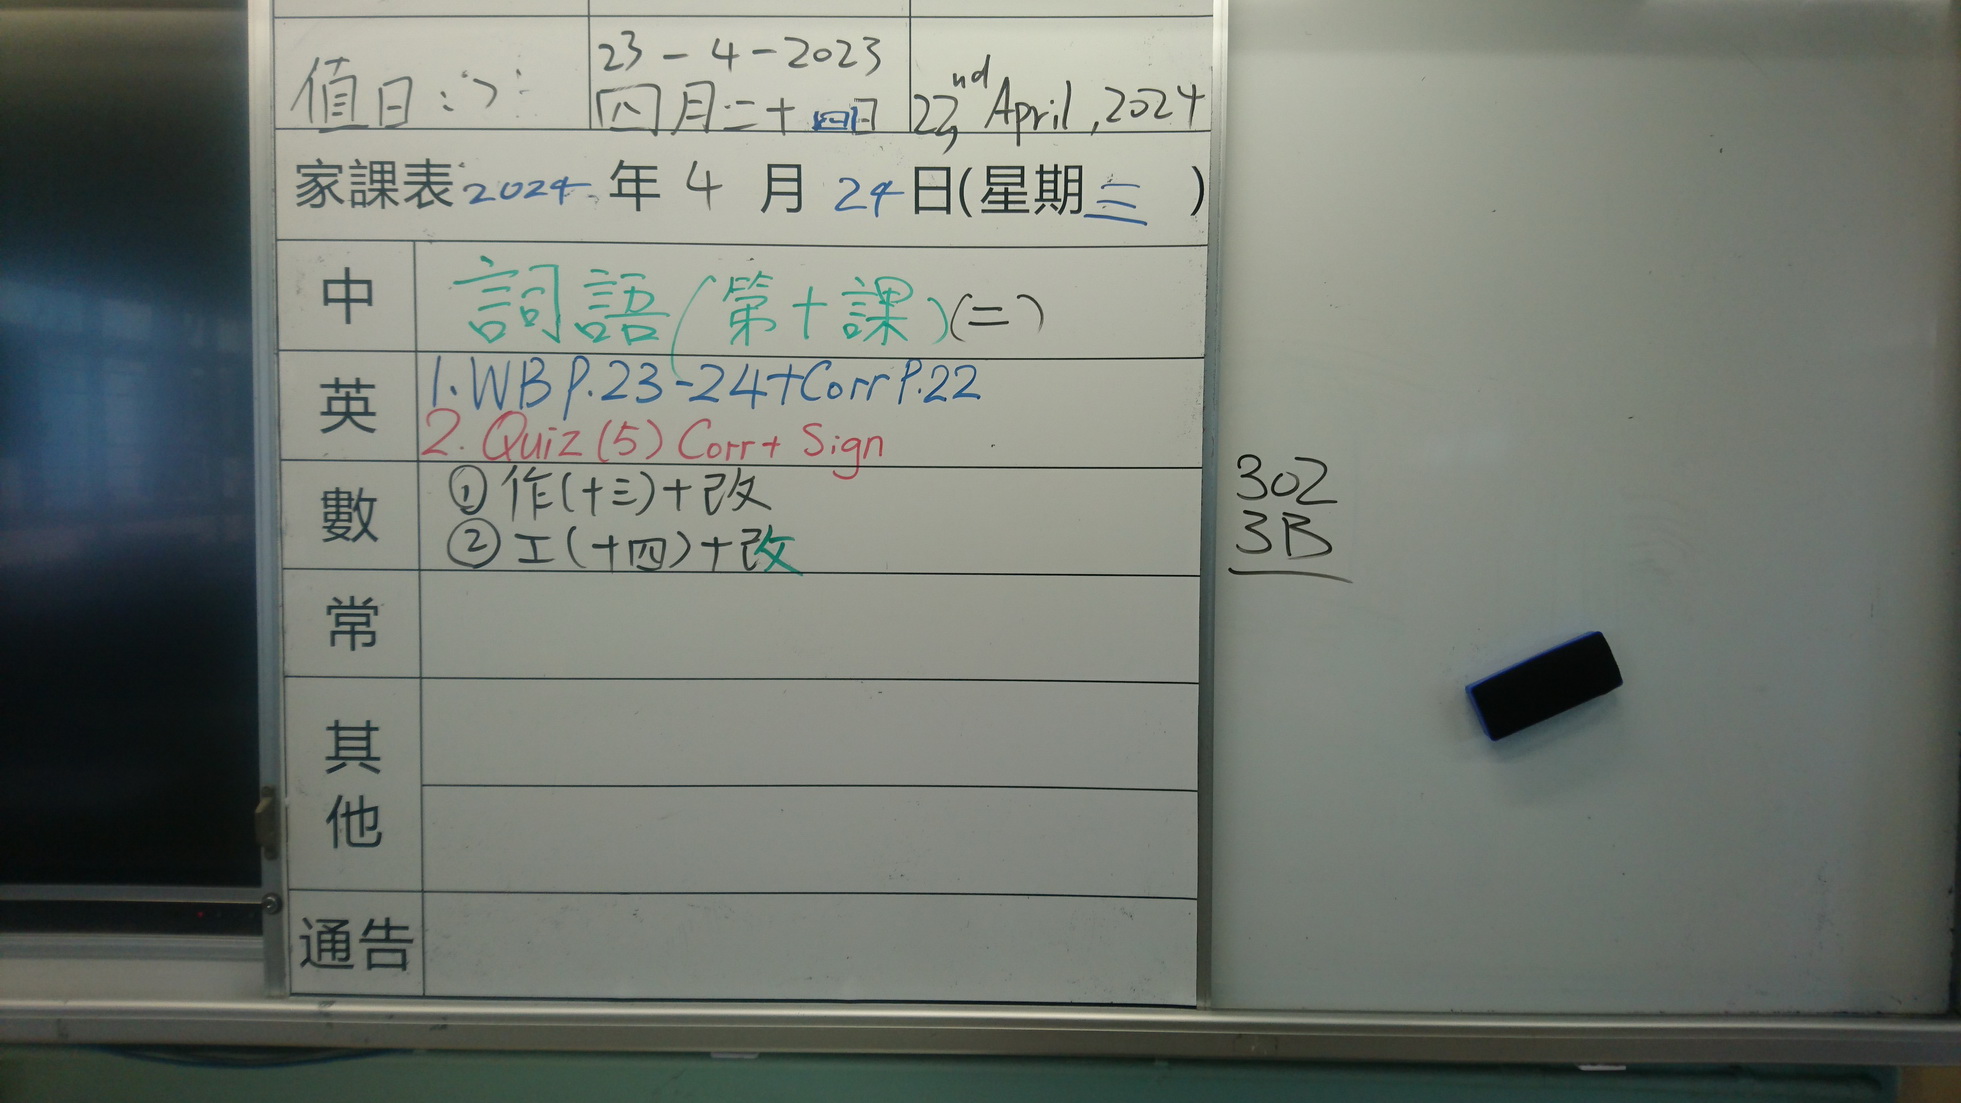 值日:
23-4-2023
四月二十四日
22nd April, 2024
家課表 2024 年 4 月 24 日(星期三)
中 詞語(第十課)(二)
英 1. WB P.23-24+Corr P.22
2. Quiz (5) Corr + Sign
數 ① 作(十三)+改
② 工(十四)+改
常
其他
通告
302
3B